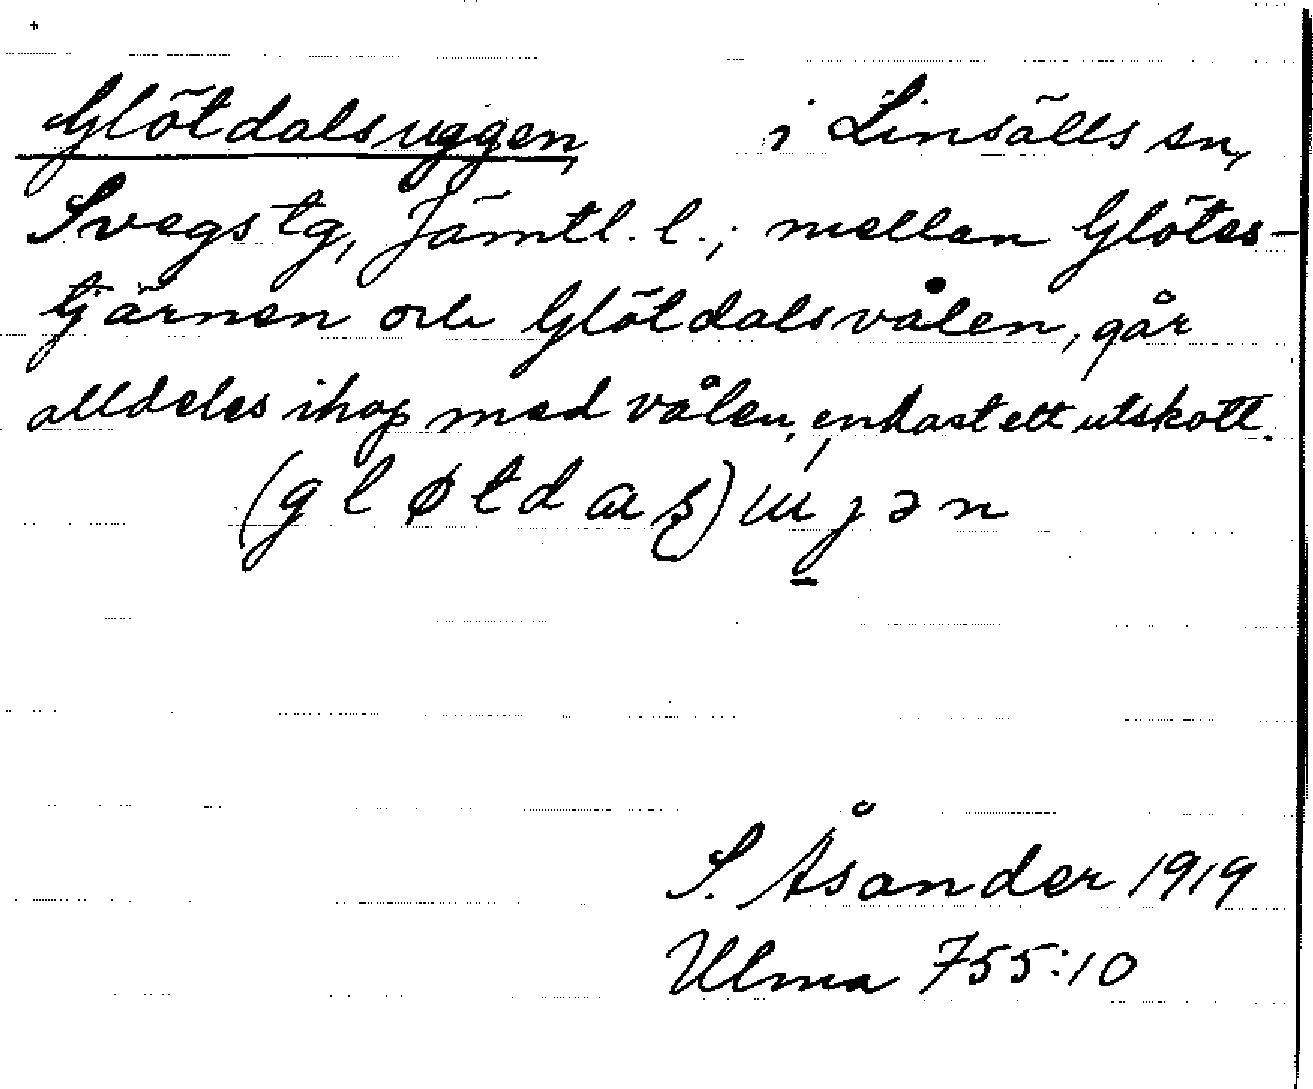 Glötdalsuggen, i Linsälls sn,
Svegs tg, Jämtl. l.; mellan Glötes-
tjärnen och Glötdalsvålen, går
alldeles ihop med vålen, endast ett utskott.
S. Åsander 1919
Ulma 755:10